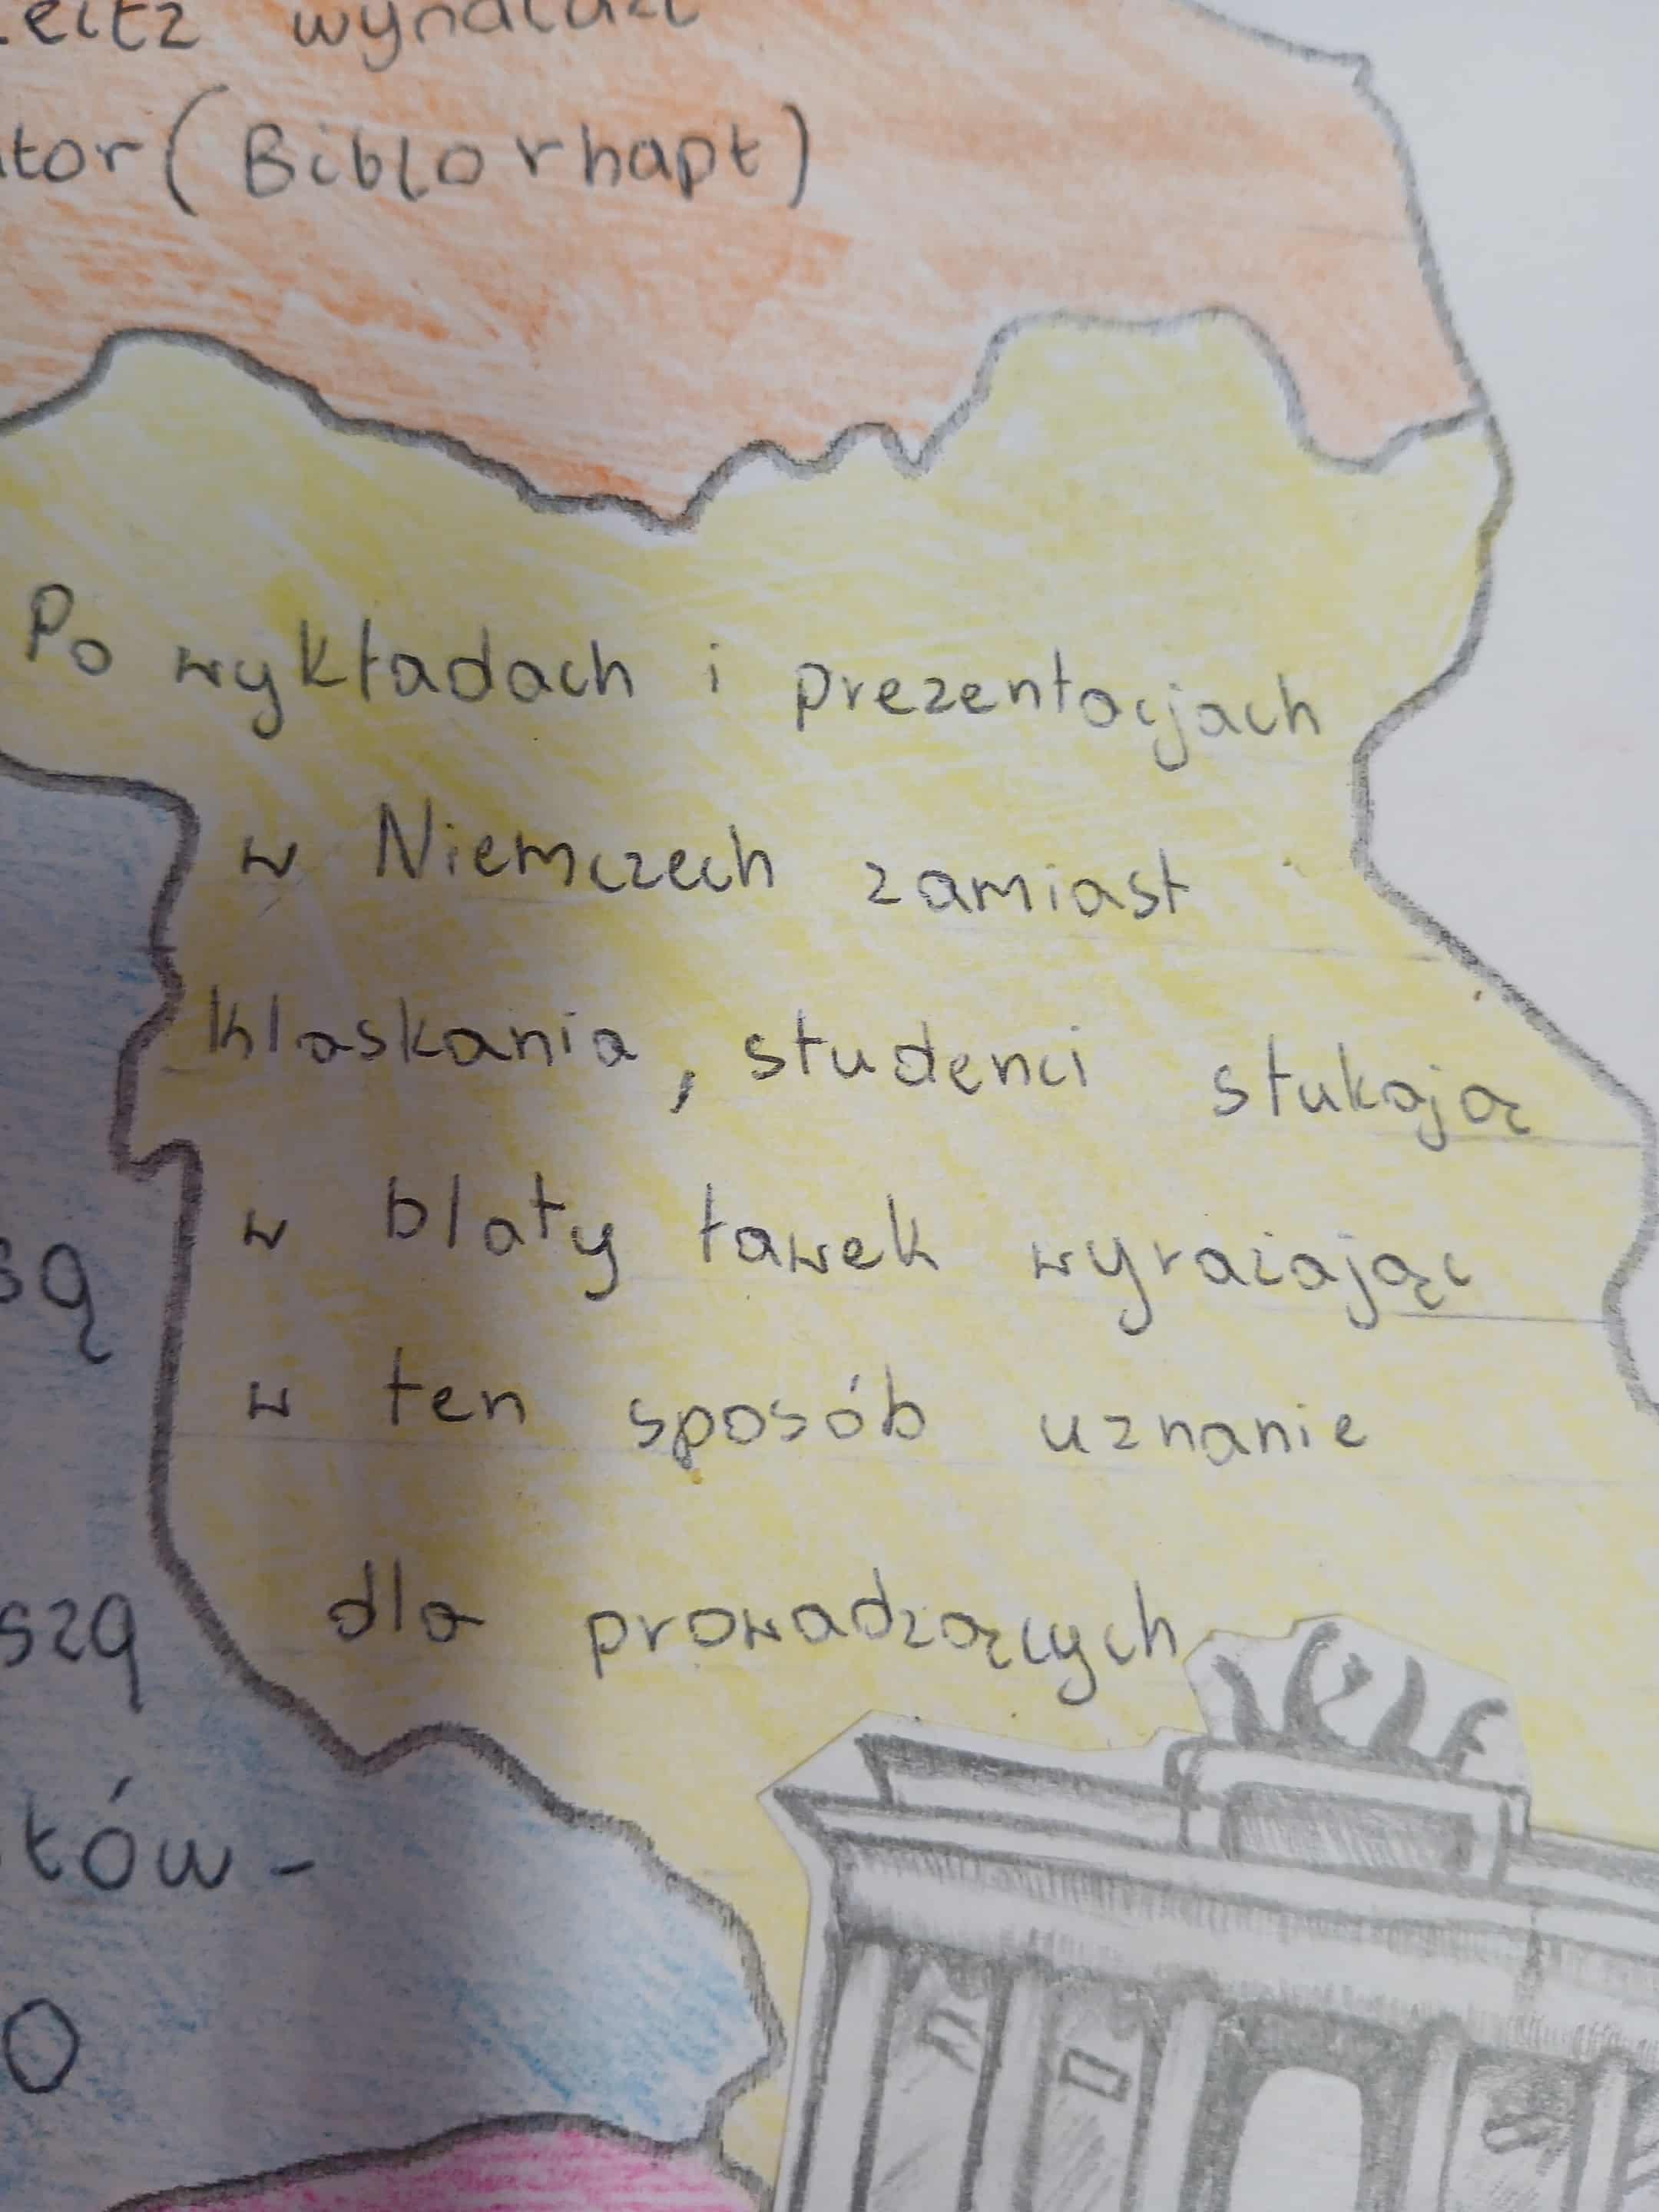 wynalazł
(Biblorhapt)
Po wykładach i prezentacjach
w Niemczech zamiast
klaskania, studenci stukają
w blaty ławek wyrażając
w ten sposób uznanie
dla prowadzących